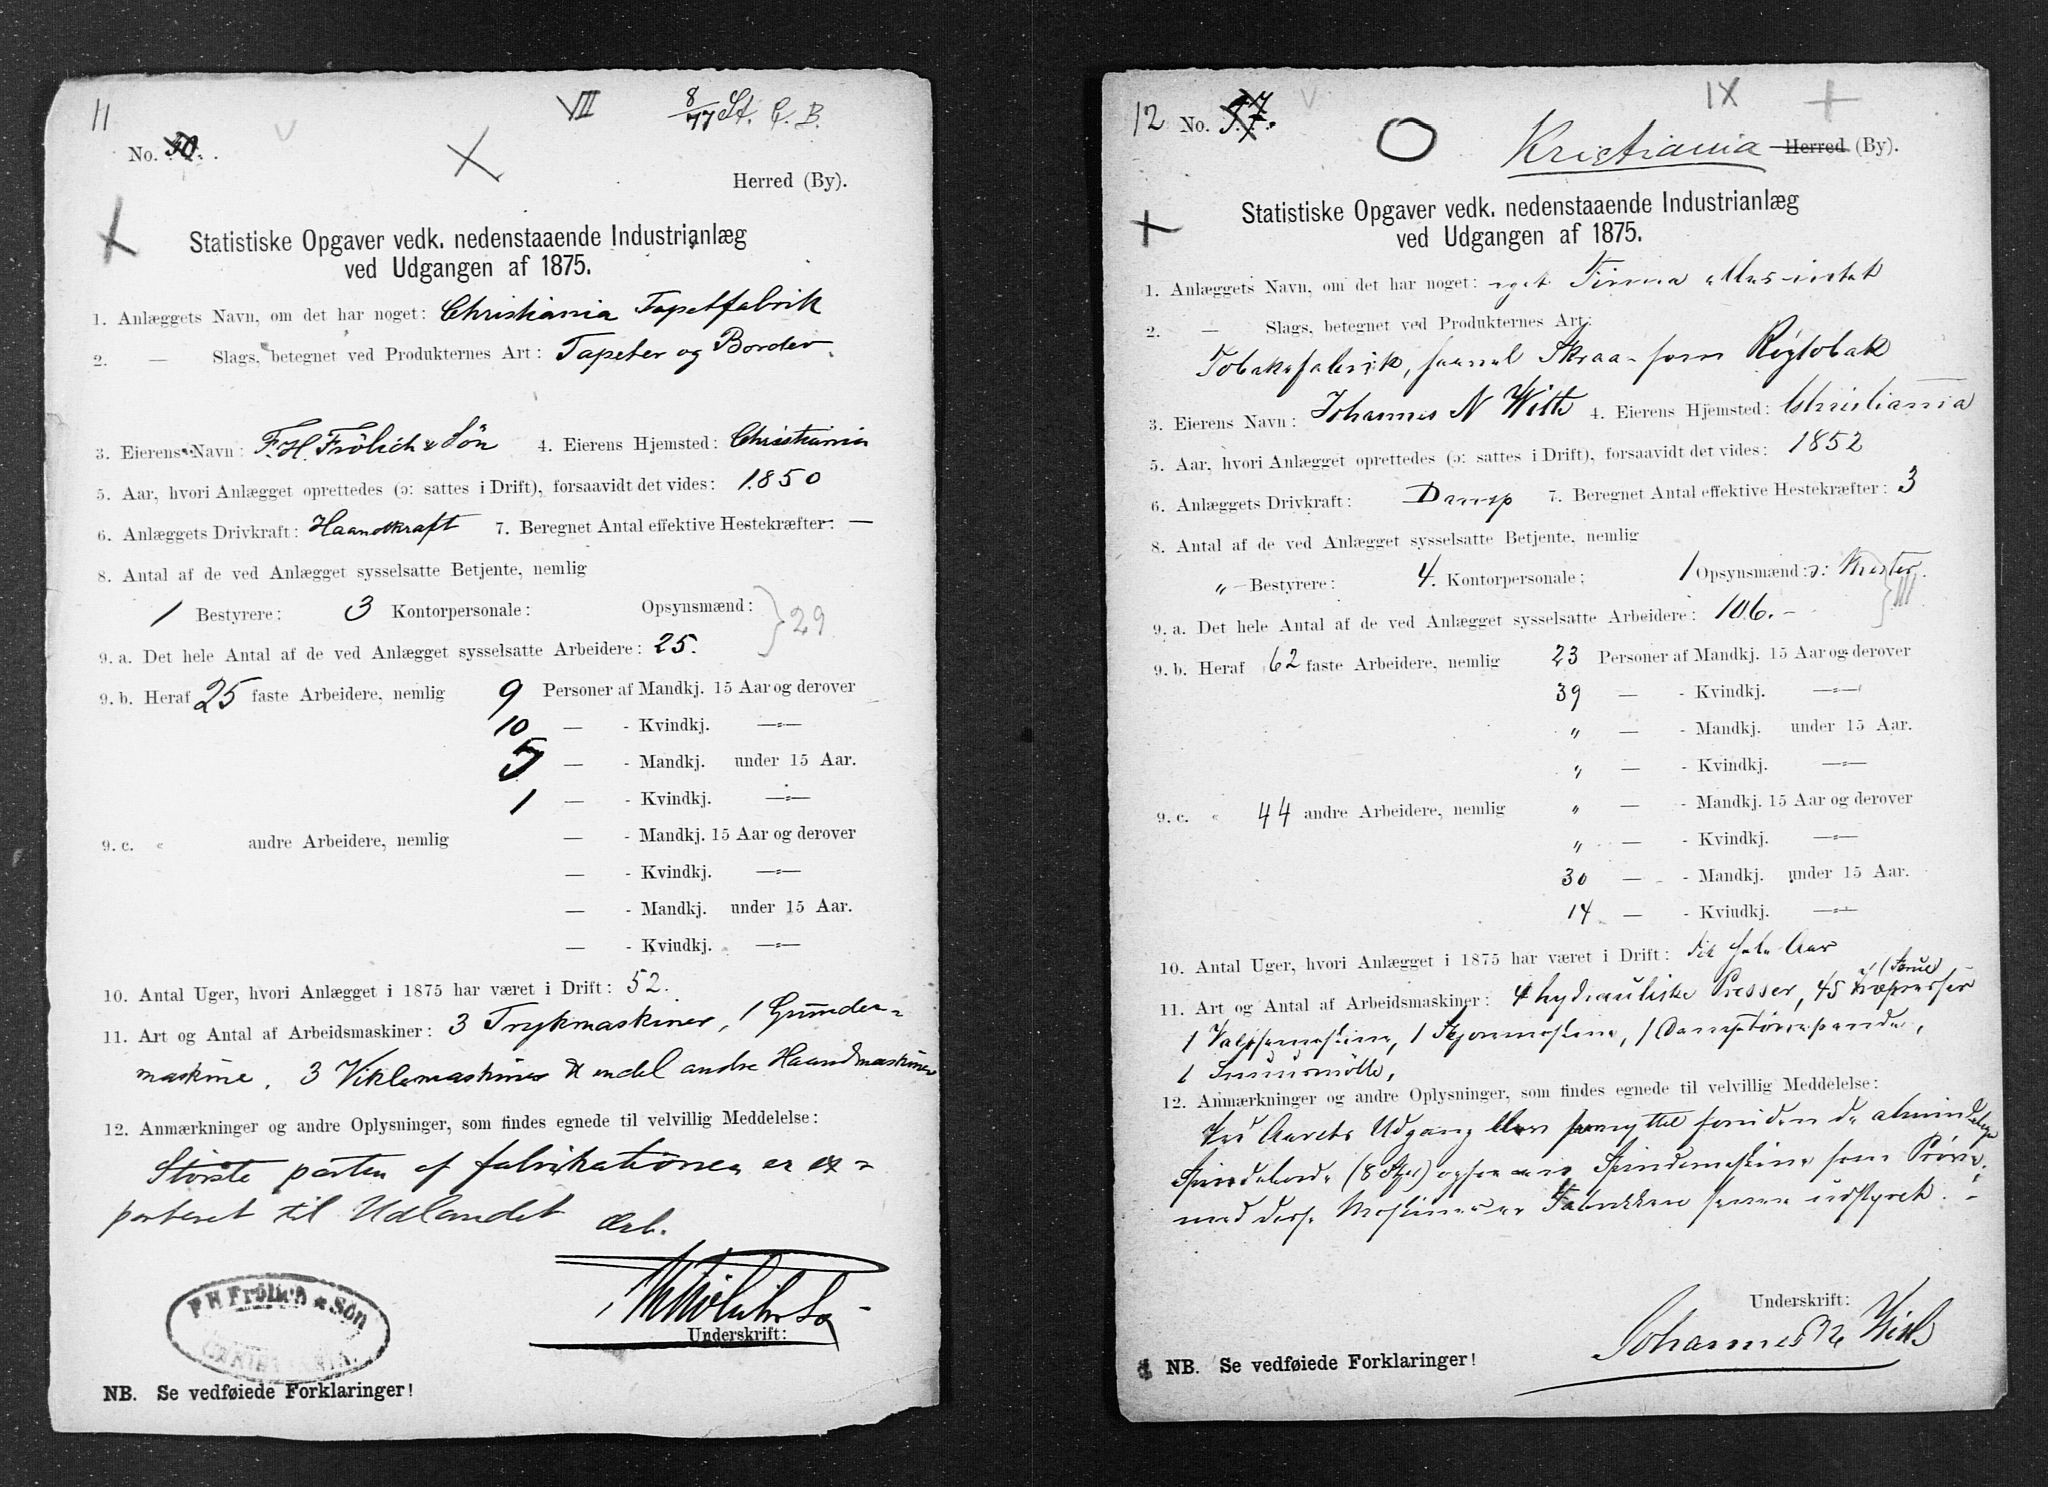 11
VIII
8/77 St. C. B.
No. 50.
Herred (By).
Statistiske Opgaver vedk. nedenstaaende Industrianlæg
ved Udgangen af 1875.
1. Anlæggets Navn, om det har noget: Christiania Tapetfabrik
2. — Slags, betegnet ved Produkternes Art: Tapeter og Border.
3. Eierens Navn: F. H. Frölich & Sön 4. Eierens Hjemsted: Christiania
5. Aar, hvori Anlægget oprettedes (ɔ: sattes i Drift), forsaavidt det vides: 1850
6. Anlæggets Drivkraft: Haandkraft 7. Beregnet Antal effektive Hestekræfter: —
8. Antal af de ved Anlægget sysselsatte Betjente, nemlig
1 Bestyrere: 3 Kontorpersonale: Opsynsmænd: } 29
9. a. Det hele Antal af de ved Anlægget sysselsatte Arbeidere: 25.
9. b. Heraf 25 faste Arbeidere, nemlig 9 Personer af Mandkj. 15 Aar og derover
10 — - Kvindkj. —„—
5 — - Mandkj. under 15 Aar.
1 — - Kvindkj. —„—
9. c. „ andre Arbeidere, nemlig — - Mandkj. 15 Aar og derover
— - Kvindkj. —„—
— - Mandkj. under 15 Aar.
— - Kviudkj. —„—
10. Antal Uger, hvori Anlægget i 1875 har været i Drift: 52.
11. Art og Antal af Arbeidsmaskiner: 3 Trykmaskiner, 1 Grunder-
maskine, 3 Viklemaskiner & endel andre Haandmaskiner
12. Anmærkninger og andre Oplysninger, som findes egnede til velvillig Meddelelse:
Störste parten af fabrikationen er ex-
porteret til Udlandet Ærb.
F H Frölich & Sön
Underskrift:
F H Frölich & Søn
CHRISTIANIA.
NB. Se vedføiede Forklaringer!
12
IX
No. 57.
Kristiania Herred (By).
Statistiske Opgaver vedk. nedenstaaende Industrianlæg
ved Udgangen af 1875.
1. Anlæggets Navn, om det har noget: eget Firma
2. — Slags, betegnet ved Produkternes Art:
Tobaksfabrik, saavel Skraa- som Røgtobak
3. Eierens Navn: Johannes N 4. Eierens Hjemsted: Christiania
5. Aar, hvori Anlægget oprettedes (ɔ: sattes i Drift), forsaavidt det vides: 1852
6. Anlæggets Drivkraft: Damp 7. Beregnet Antal effektive Hestekræfter: 3
8. Antal af de ved Anlægget sysselsatte Betjente, nemlig
„ Bestyrere: 4. Kontorpersonale: 1 Opsynsmænd: ɔ: Mester.
} 111
9. a. Det hele Antal af de ved Anlægget sysselsatte Arbeidere: 106.-
9. b. Heraf 62 faste Arbeidere, nemlig 23 Personer af Mandkj. 15 Aar og derover
39 — - Kvindkj. —„—
„ — - Mandkj. under 15 Aar.
„ — - Kvindkj. —„—
9. c. „ 44 andre Arbeidere, nemlig „ — - Mandkj. 15 Aar og derover
„ — - Kvindkj. —„—
30 — - Mandkj. under 15 Aar.
14 — - Kviudkj. —„—
10. Antal Uger, hvori Anlægget i 1875 har været i Drift: det hele Aar
11. Art og Antal af Arbeidsmaskiner: 4 hydrauliske Presser, 45 (Skrue)
1 Valsemaskine, 1 Skjæremaskine, 1 Damptørrepande,
1 Snuusmölle,
12. Anmærkninger og andre Oplysninger, som findes egnede til velvillig Meddelelse:
Ved Aarets Udgang blev benyttet foruden de almindelige
Spindeborde (8 Stk) ogsaa en Spindemaskine som Prøve.
med disse Maskiner er Fabrikken senere udstyret.
Underskrift:
Johannes N
NB. Se vedføiede Forklaringer!